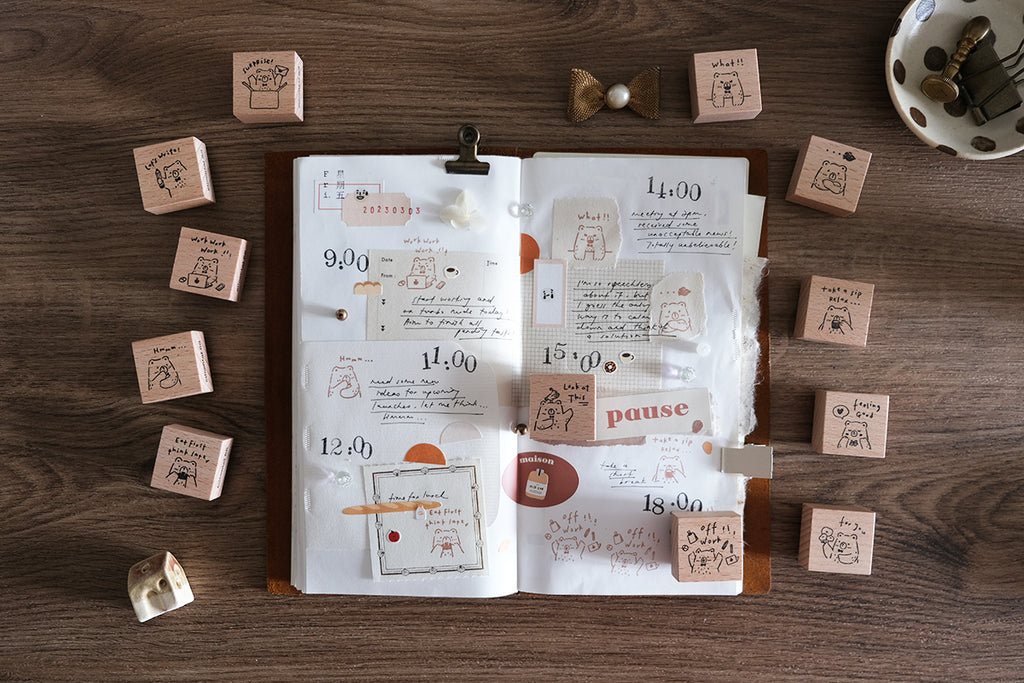 surprise!
Let's Write!
Work Work
Work !!,
Hmmm...
Eat First
think later,
Fri.
星期五
20230303
9:00
Work Work
Work !!,
Date
Time
From
start working and
Aim to finish all
11:00
Hmmm...
need some new
ideas for upcoming
launches, let me think...
Hmmm...
12:00
time for lunch
Eat First
think later,
14:00
meeting at 2pm,
received some
unacceptable news!
Totally unbelievable!
What!!
I'm so speechless
about it, but
I guess the only
way is to calm
down and think of
a solution
15:00
Look at
This
pause
maison
take a sip
Relax...
take a
short
break
18:00
Off !!,
Work
Off !!,
Work
Off !!,
Work
What!!
...
take a sip
Relax...
feeling
Good
for you